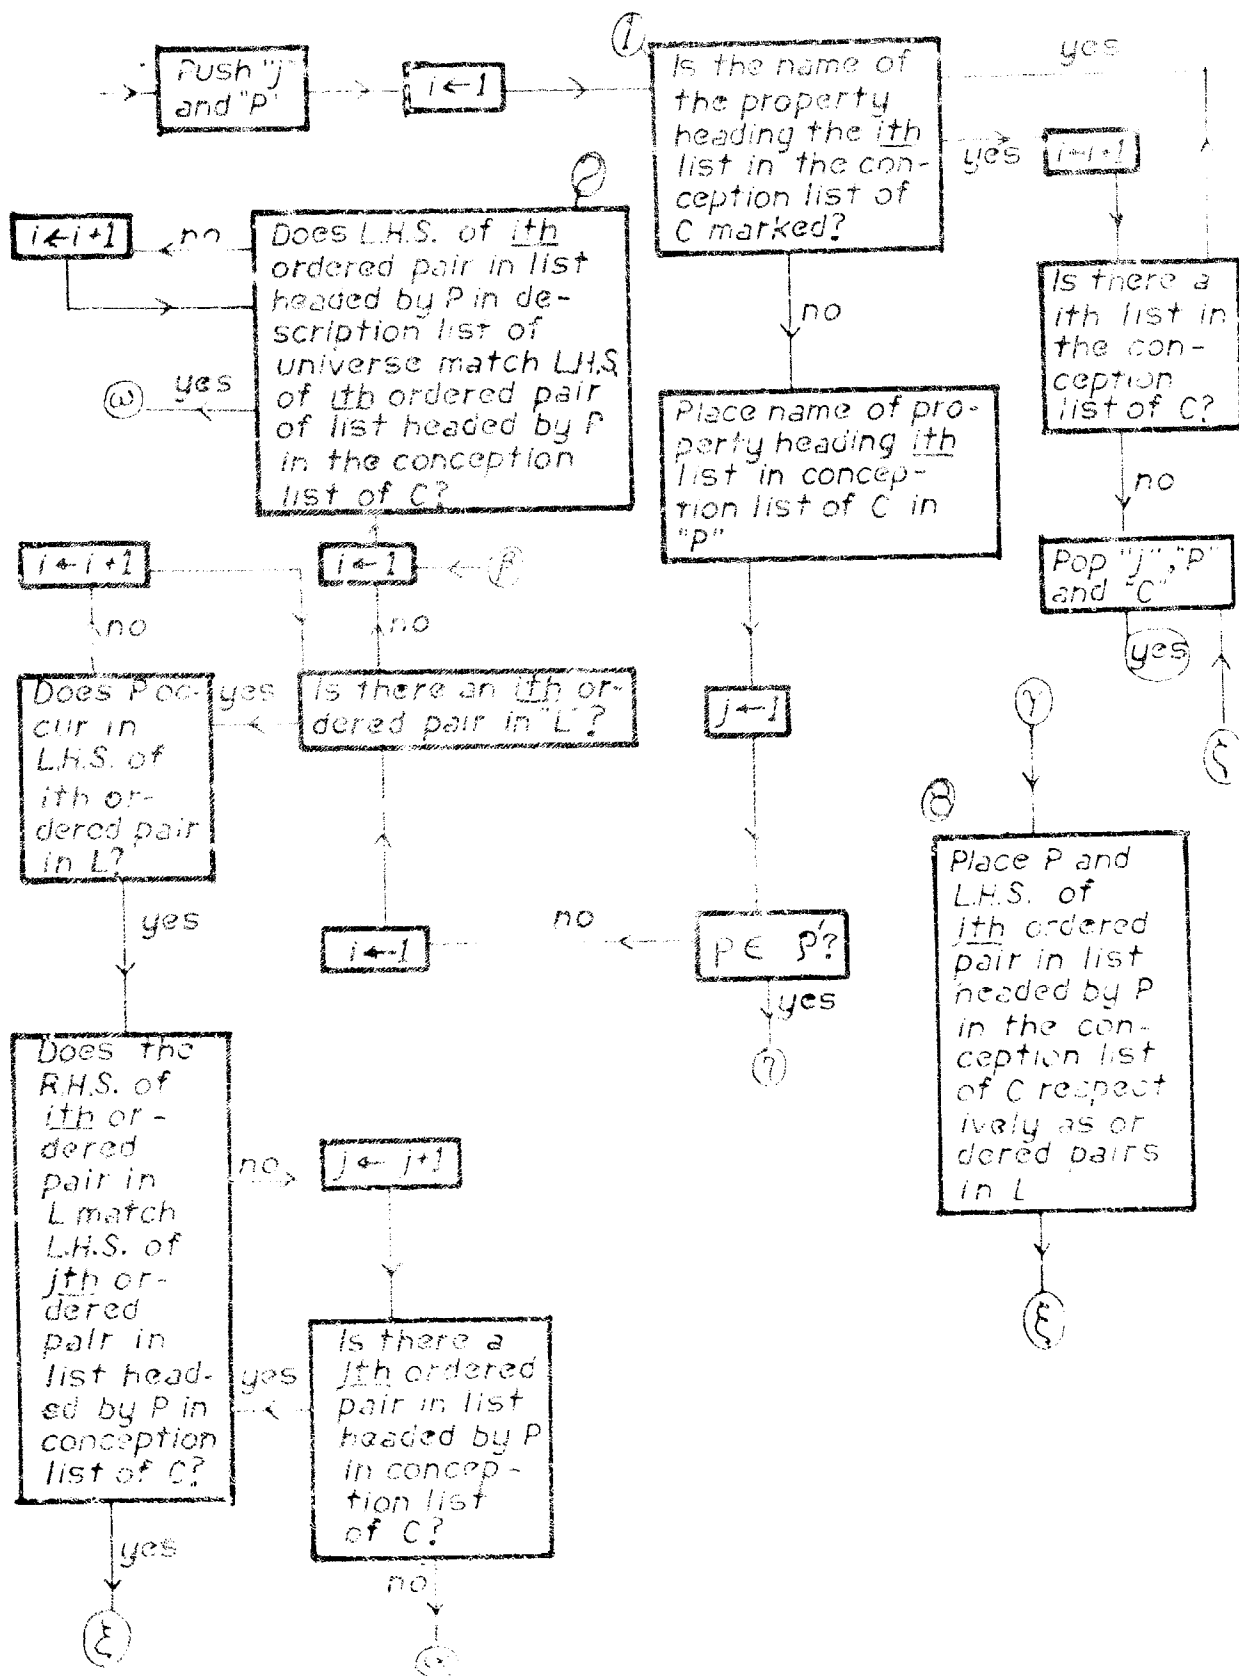 Push "j"
and "P"
i ← 1
1
Is the name of
the property
heading the ith
list in the con-
ception list of
C marked?
yes
yes
i ← i+1
no
Is there a
ith list in
the con-
ception
list of C?
no
Pop "j", "P"
and "C"
yes
ζ
2
i ← i+1
no
Does L.H.S. of ith
ordered pair in list
headed by P in de-
scription list of
universe match L.H.S.
of ith ordered pair
of list headed by P
in the conception
list of C?
yes
ω
Place name of pro-
perty heading ith
list in concep-
tion list of C in
"P"
i ← i+1
i ← 1
β
no
no
Does P oc-
cur in
L.H.S. of
ith or-
dered pair
in L?
yes
Is there an ith or-
dered pair in "L"?
j ← 1
γ
8
Place P and
L.H.S. of
jth ordered
pair in list
headed by P
in the con-
ception list
of C respect
ively as or
dered pairs
in L
ξ
yes
i ← 1
no
P ∈ P'?
yes
η
Does the
R.H.S. of
ith or-
dered
pair in
L match
L.H.S. of
jth or-
dered
pair in
list head-
ed by P in
conception
list of C?
no
j ← j+1
yes
Is there a
jth ordered
pair in list
headed by P
in concep-
tion list
of C?
yes
ξ
no